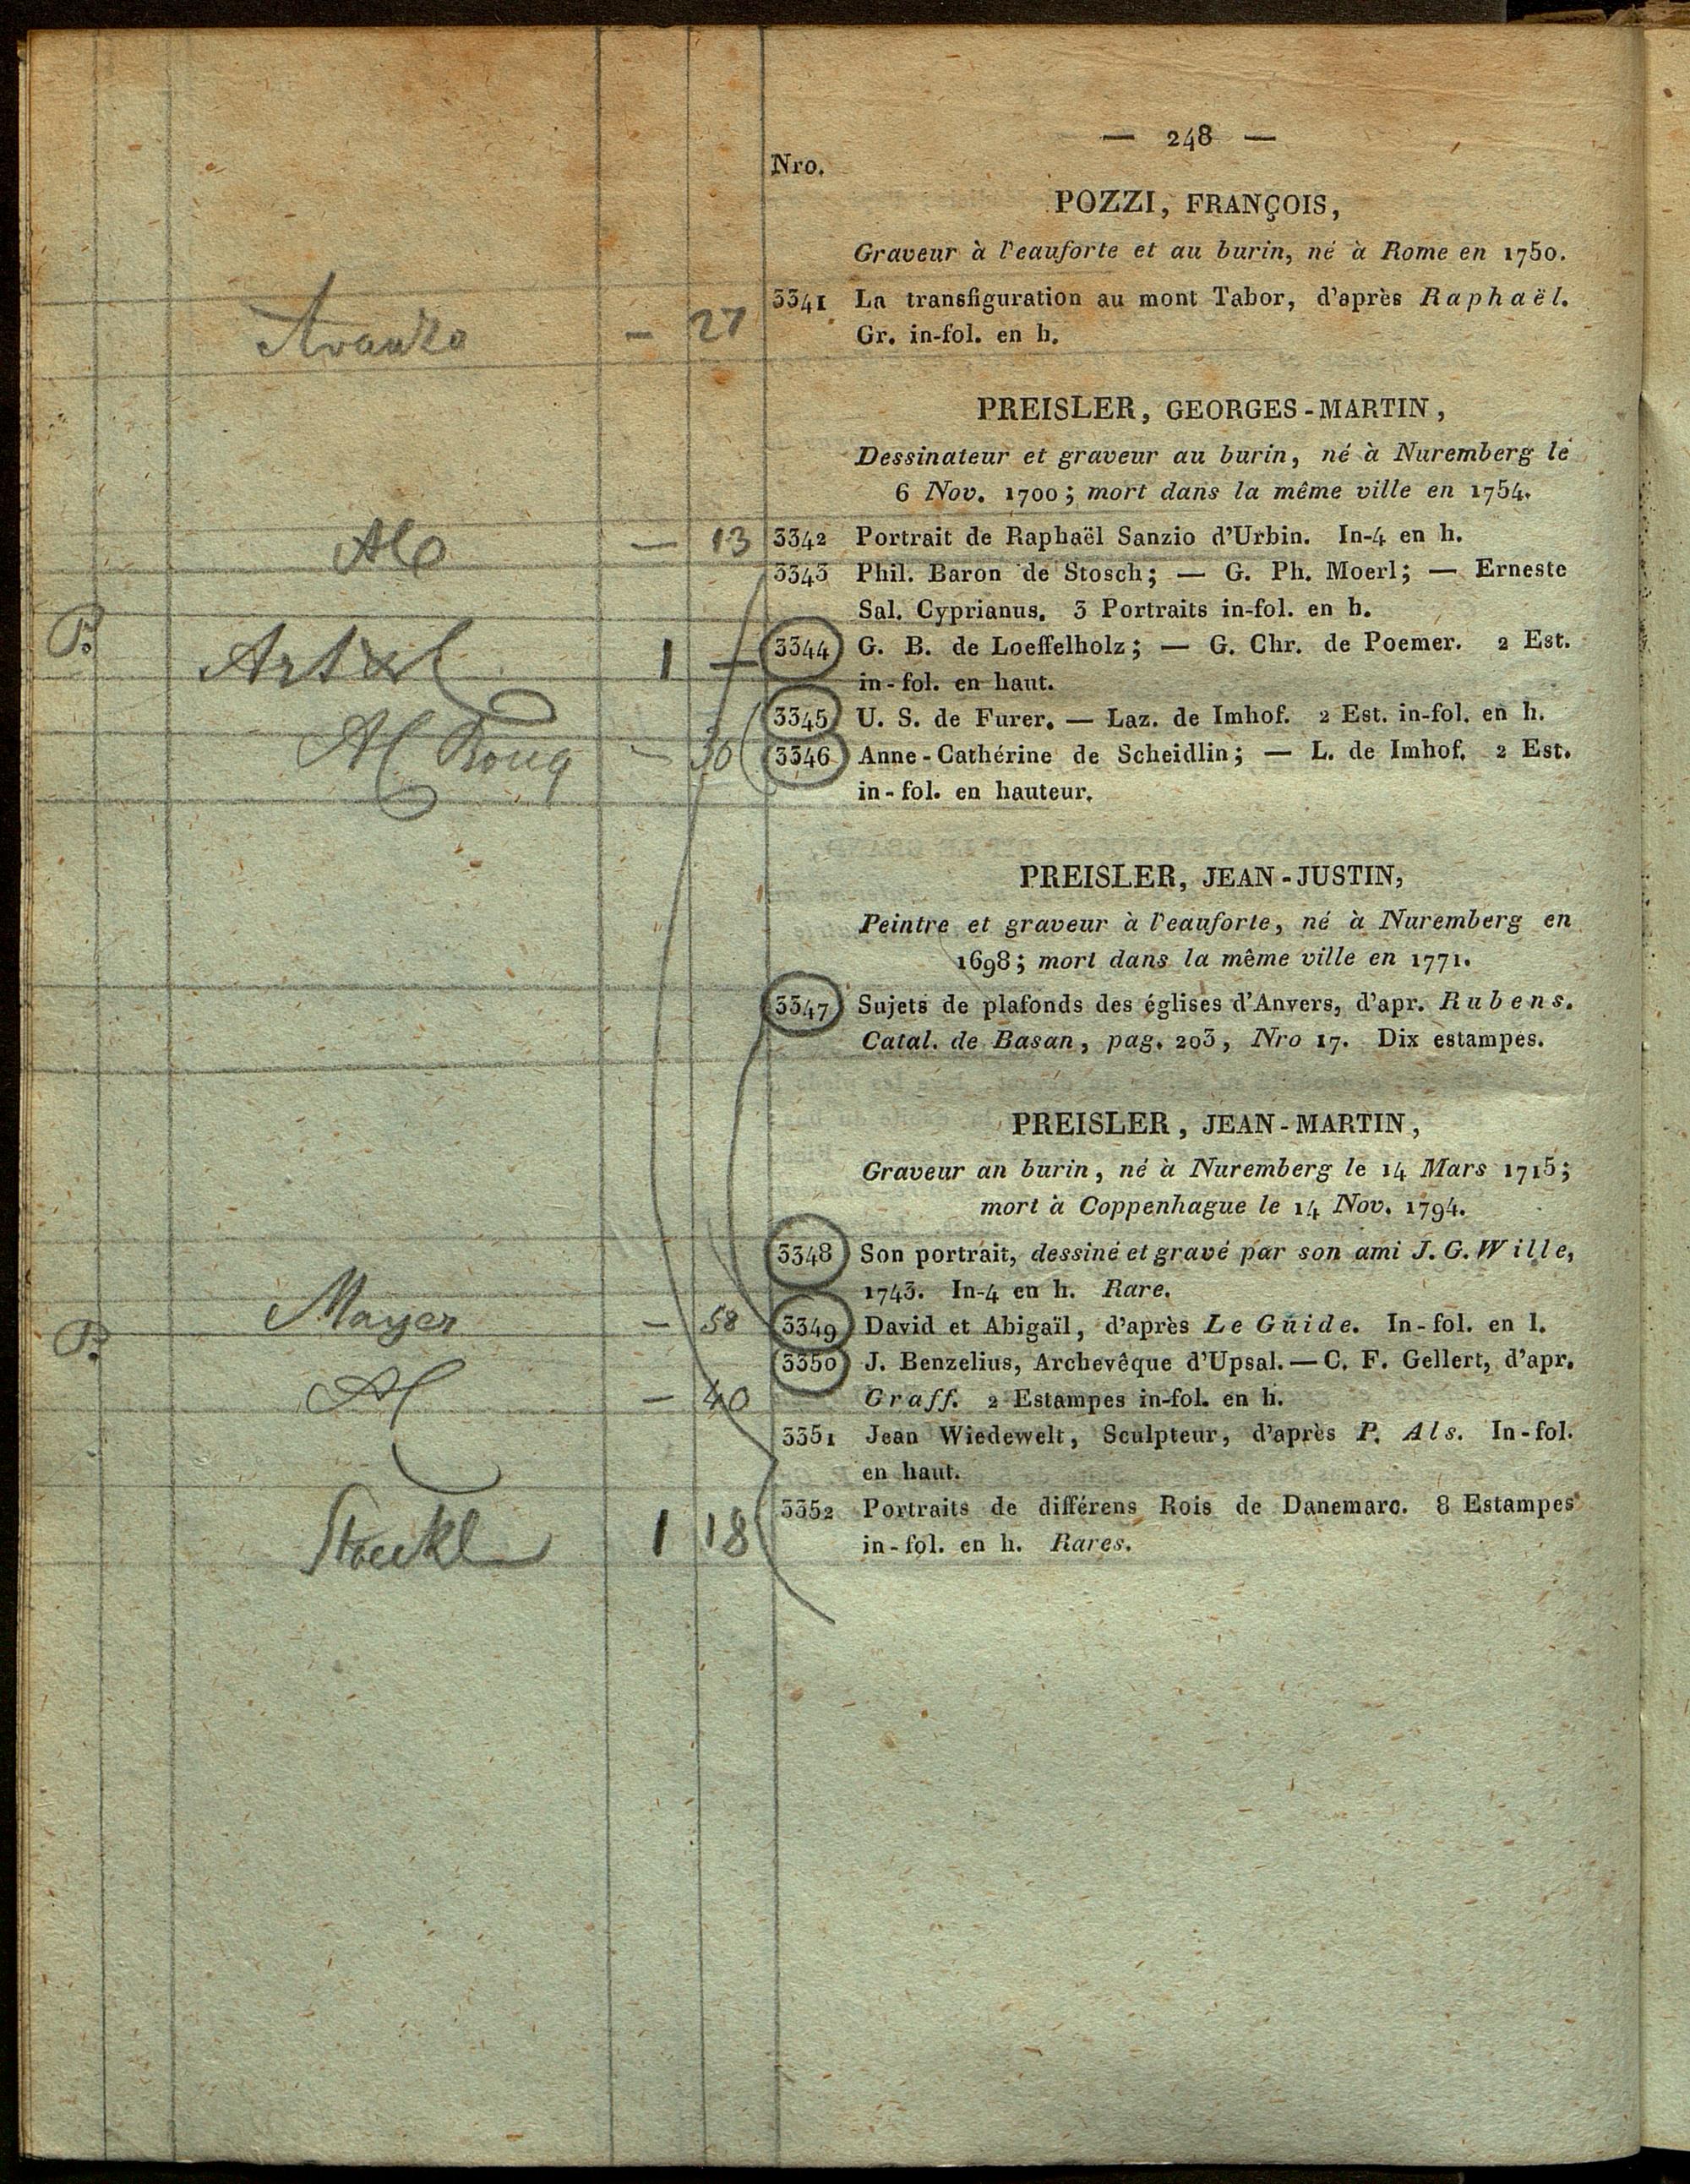 — 248 —
Nro.
POZZI, FRANÇOIS,
Graveur à l'eauforte et au burin, né à Rome en 1750.
3341 La transfiguration au mont Tabor, d'après Raphaël.
Gr. in-fol. en h.
— 27
PREISLER, GEORGES-MARTIN,
Dessinateur et graveur au burin, né à Nuremberg le
6 Nov. 1700; mort dans la même ville en 1754.
— 13 3342 Portrait de Raphaël Sanzio d'Urbin. In-4 en h.
3343 Phil. Baron de Stosch; — G. Ph. Moerl; — Erneste
Sal. Cyprianus. 3 Portraits in-fol. en h.
P. Artaria 1 — 3344 G. B. de Loeffelholz; — G. Chr. de Poemer. 2 Est.
in-fol. en haut.
3345 U. S. de Furer. — Laz. de Imhof. 2 Est. in-fol. en h.
— 30 3346 Anne-Cathérine de Scheidlin; — L. de Imhof. 2 Est.
in-fol. en hauteur.
PREISLER, JEAN-JUSTIN,
Peintre et graveur à l'eauforte, né à Nuremberg en
1698; mort dans la même ville en 1771.
3347 Sujets de plafonds des églises d'Anvers, d'apr. Rubens.
Catal. de Basan, pag. 203, Nro 17. Dix estampes.
PREISLER, JEAN-MARTIN,
Graveur an burin, né à Nuremberg le 14 Mars 1715;
mort à Coppenhague le 14 Nov. 1794.
3348 Son portrait, dessiné et gravé par son ami J. G. Wille,
1743. In-4 en h. Rare.
P. Mayer — 58 3349 David et Abigaïl, d'après Le Guide. In-fol. en l.
3350 J. Benzelius, Archevêque d'Upsal. — C. F. Gellert, d'apr.
— 40 Graff. 2 Estampes in-fol. en h.
3351 Jean Wiedewelt, Sculpteur, d'après P. Als. In-fol.
en haut.
3352 Portraits de différens Rois de Danemarc. 8 Estampes
Stoeckl 1 18 in-fol. en h. Rares.